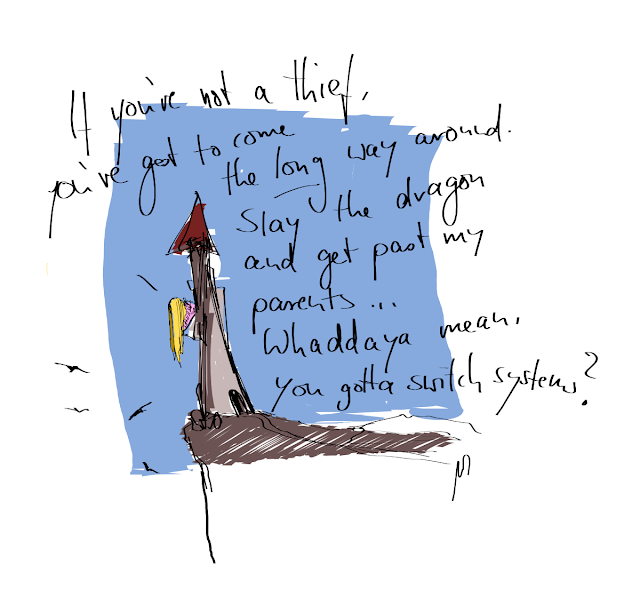 If you've not a thief,
you've got to come
the long way around.
Slay the dragon
and get past my
parents...
Whaddaya mean,
you gotta switch systems?